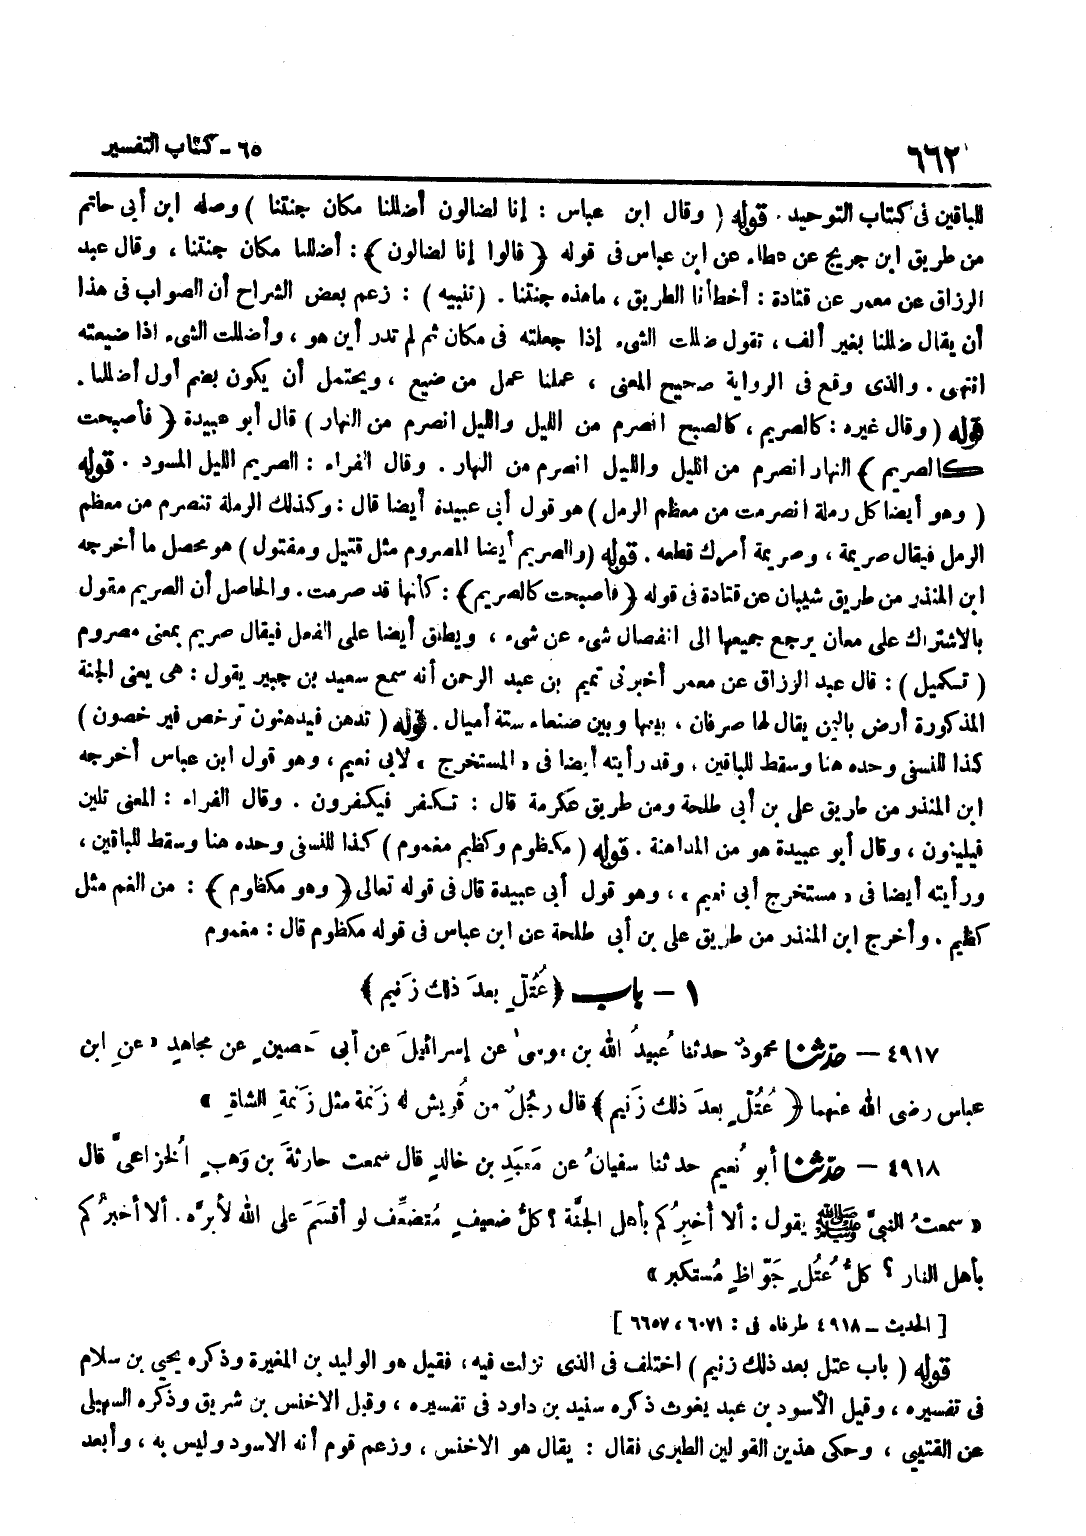 ٦٦٢
٦٥ - كتاب التفسير
للباقين فى كتاب التوحيد . قوله ( وقال ابن عباس : إنا لضالون أضللنا مكان جنتنا ) وصله ابن أبى حاتم
من طريق ابن جريج عن عطاء عن ابن عباس فى قوله ﴿ قالوا إنا لضالون ﴾ : أضللنا مكان جنتنا ، وقال عبد
الرزاق عن معمر عن قتادة : أخطأنا الطريق ، ماهذه جنتنا . ( تنبيه ) : زعم بعض الشراح أن الصواب فى هذا
أن يقال ضللنا بغير ألف ، تقول ضللت الشىء إذا جعلته فى مكان ثم لم تدر أين هو ، وأضللت الشىء اذا ضيعته
انتهى . والذى وقع فى الرواية صحيح المعنى ، عملنا عمل من ضيع ، ويحتمل أن يكون بضم أول أضللنا .
قوله ( وقال غيره : كالصريم ، كالصبح انصرم من الليل والليل انصرم من النهار ) قال أبو عبيدة ﴿ فأصبحت
كالصريم ﴾ النهار انصرم من الليل والليل انصرم من النهار . وقال الفراء : الصريم الليل المسود . قوله
( وهو أيضا كل رملة انصرمت من معظم الرمل ) هو قول أبى عبيدة أيضا قال : وكذلك الرملة تنصرم من معظم
الرمل فيقال صريمة ، وصريمة أمرك قطعه . قوله ( والصريم أيضا المصروم مثل قتيل ومقتول ) هو محصل ما أخرجه
ابن المنذر من طريق شيبان عن قتادة فى قوله ﴿ فأصبحت كالصريم ﴾ : كأنها قد صرمت . والحاصل أن الصريم مقول
بالاشتراك على معان يرجع جميعها الى انفصال شىء عن شىء ، ويطلق أيضا على الفعل فيقال صريم بمعنى مصروم
( تكميل ) : قال عبد الرزاق عن معمر أخبرنى تميم بن عبد الرحمن أنه سمع سعيد بن جبير يقول : هى يعنى الجنة
المذكورة أرض باليمن يقال لها صرفان ، بينها وبين صنعاء ستة أميال . قوله ( تدهن فيدهنون ترخص فيرخصون )
كذا للنسفى وحده هنا وسقط للباقين ، وقد رأيته أيضا فى « المستخرج » لابى نعيم ، وهو قول ابن عباس أخرجه
ابن المنذر من طريق على بن أبى طلحة ومن طريق عكرمة قال : تكفر فيكفرون . وقال الفراء : المعنى تلين
فيلينون ، وقال أبو عبيدة هو من المداهنة . قوله ( مكظوم وكظيم مغموم ) كذا للنسفى وحده هنا وسقط للباقين ،
ورأيته أيضا فى « مستخرج أبى نعيم » ، وهو قول أبى عبيدة قال فى قوله تعالى ﴿ وهو مكظوم ﴾ : من الغم مثل
كظيم . وأخرج ابن المنذر من طريق على بن أبى طلحة عن ابن عباس فى قوله مكظوم قال : مغموم
١ - باب ﴿ عُتُلٍّ بعدَ ذلك زَنيم ﴾
٤٩١٧ - حدّثنا محمودٌ حدثنا عُبيدُ الله بن موسىٰ عن إسرائيلَ عن أبى حَصينٍ عن مجاهدٍ « عنِ ابن
عباس رضى الله عنهما ﴿ عُتُلٍّ بعدَ ذلك زَنيم ﴾ قال رجُلٌ من قُريش له زَنمة مثل زَنمةِ الشاةِ »
٤٩١٨ - حدّثنا أبو نُعيم حدثنا سفيانُ عن مَعبَدِ بن خالدٍ قال سمعت حارثةَ بن وَهبٍ الخُزاعىَّ قال
« سمعتُ النبىَّ ﷺ يقول : ألا أُخبِرُكم بأهلِ الجنَّة ؟ كلُّ ضعيفٍ مُتضعِّف لو أقسَمَ على الله لأبرَّه . ألا أخبرُكم
بأهل النار ؟ كلُّ عُتُلٍّ جَوّاظٍ مُستكبر »
[ الحديث ـ ٤٩١٨ طرفاه فى : ٦٠٧١ ، ٦٦٥٧ ]
قوله ( باب عتل بعد ذلك زنيم ) اختلف فى الذى نزلت فيه ، فقيل هو الوليد بن المغيرة وذكره يحيى بن سلام
فى تفسيره ، وقيل الأسود بن عبد يغوث ذكره سنيد بن داود فى تفسيره ، وقيل الاخنس بن شريق وذكره السهيلى
عن القتيبي ، وحكى هذين القولين الطبرى فقال : يقال هو الاخنس ، وزعم قوم أنه الاسود وليس به ، وأبعد